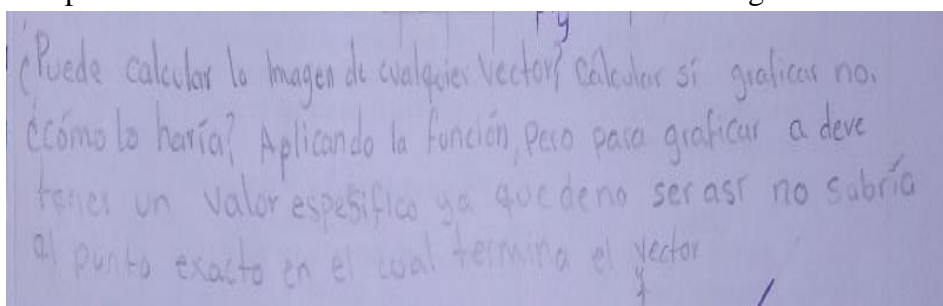 ¿Puede calcular la Imagen de cualquier Vector? Calcular sí graficar no.
¿cómo lo haría? Aplicando la función, pero para graficar a deve
tener un valor espesifico ya que deno ser asi no sabría
al punto exacto en el cual termina el vector